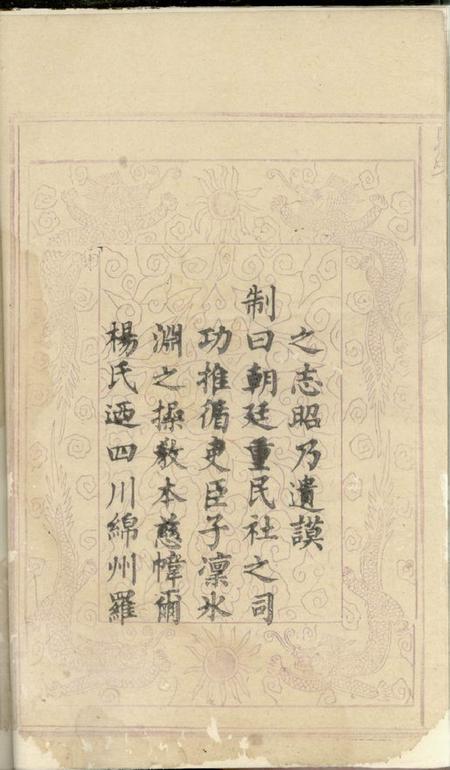 之志昭乃遺謨
制曰朝廷重民社之司
功推循吏臣子凛氷
淵之操敎本慈幃爾
楊氏迺四川綿州羅